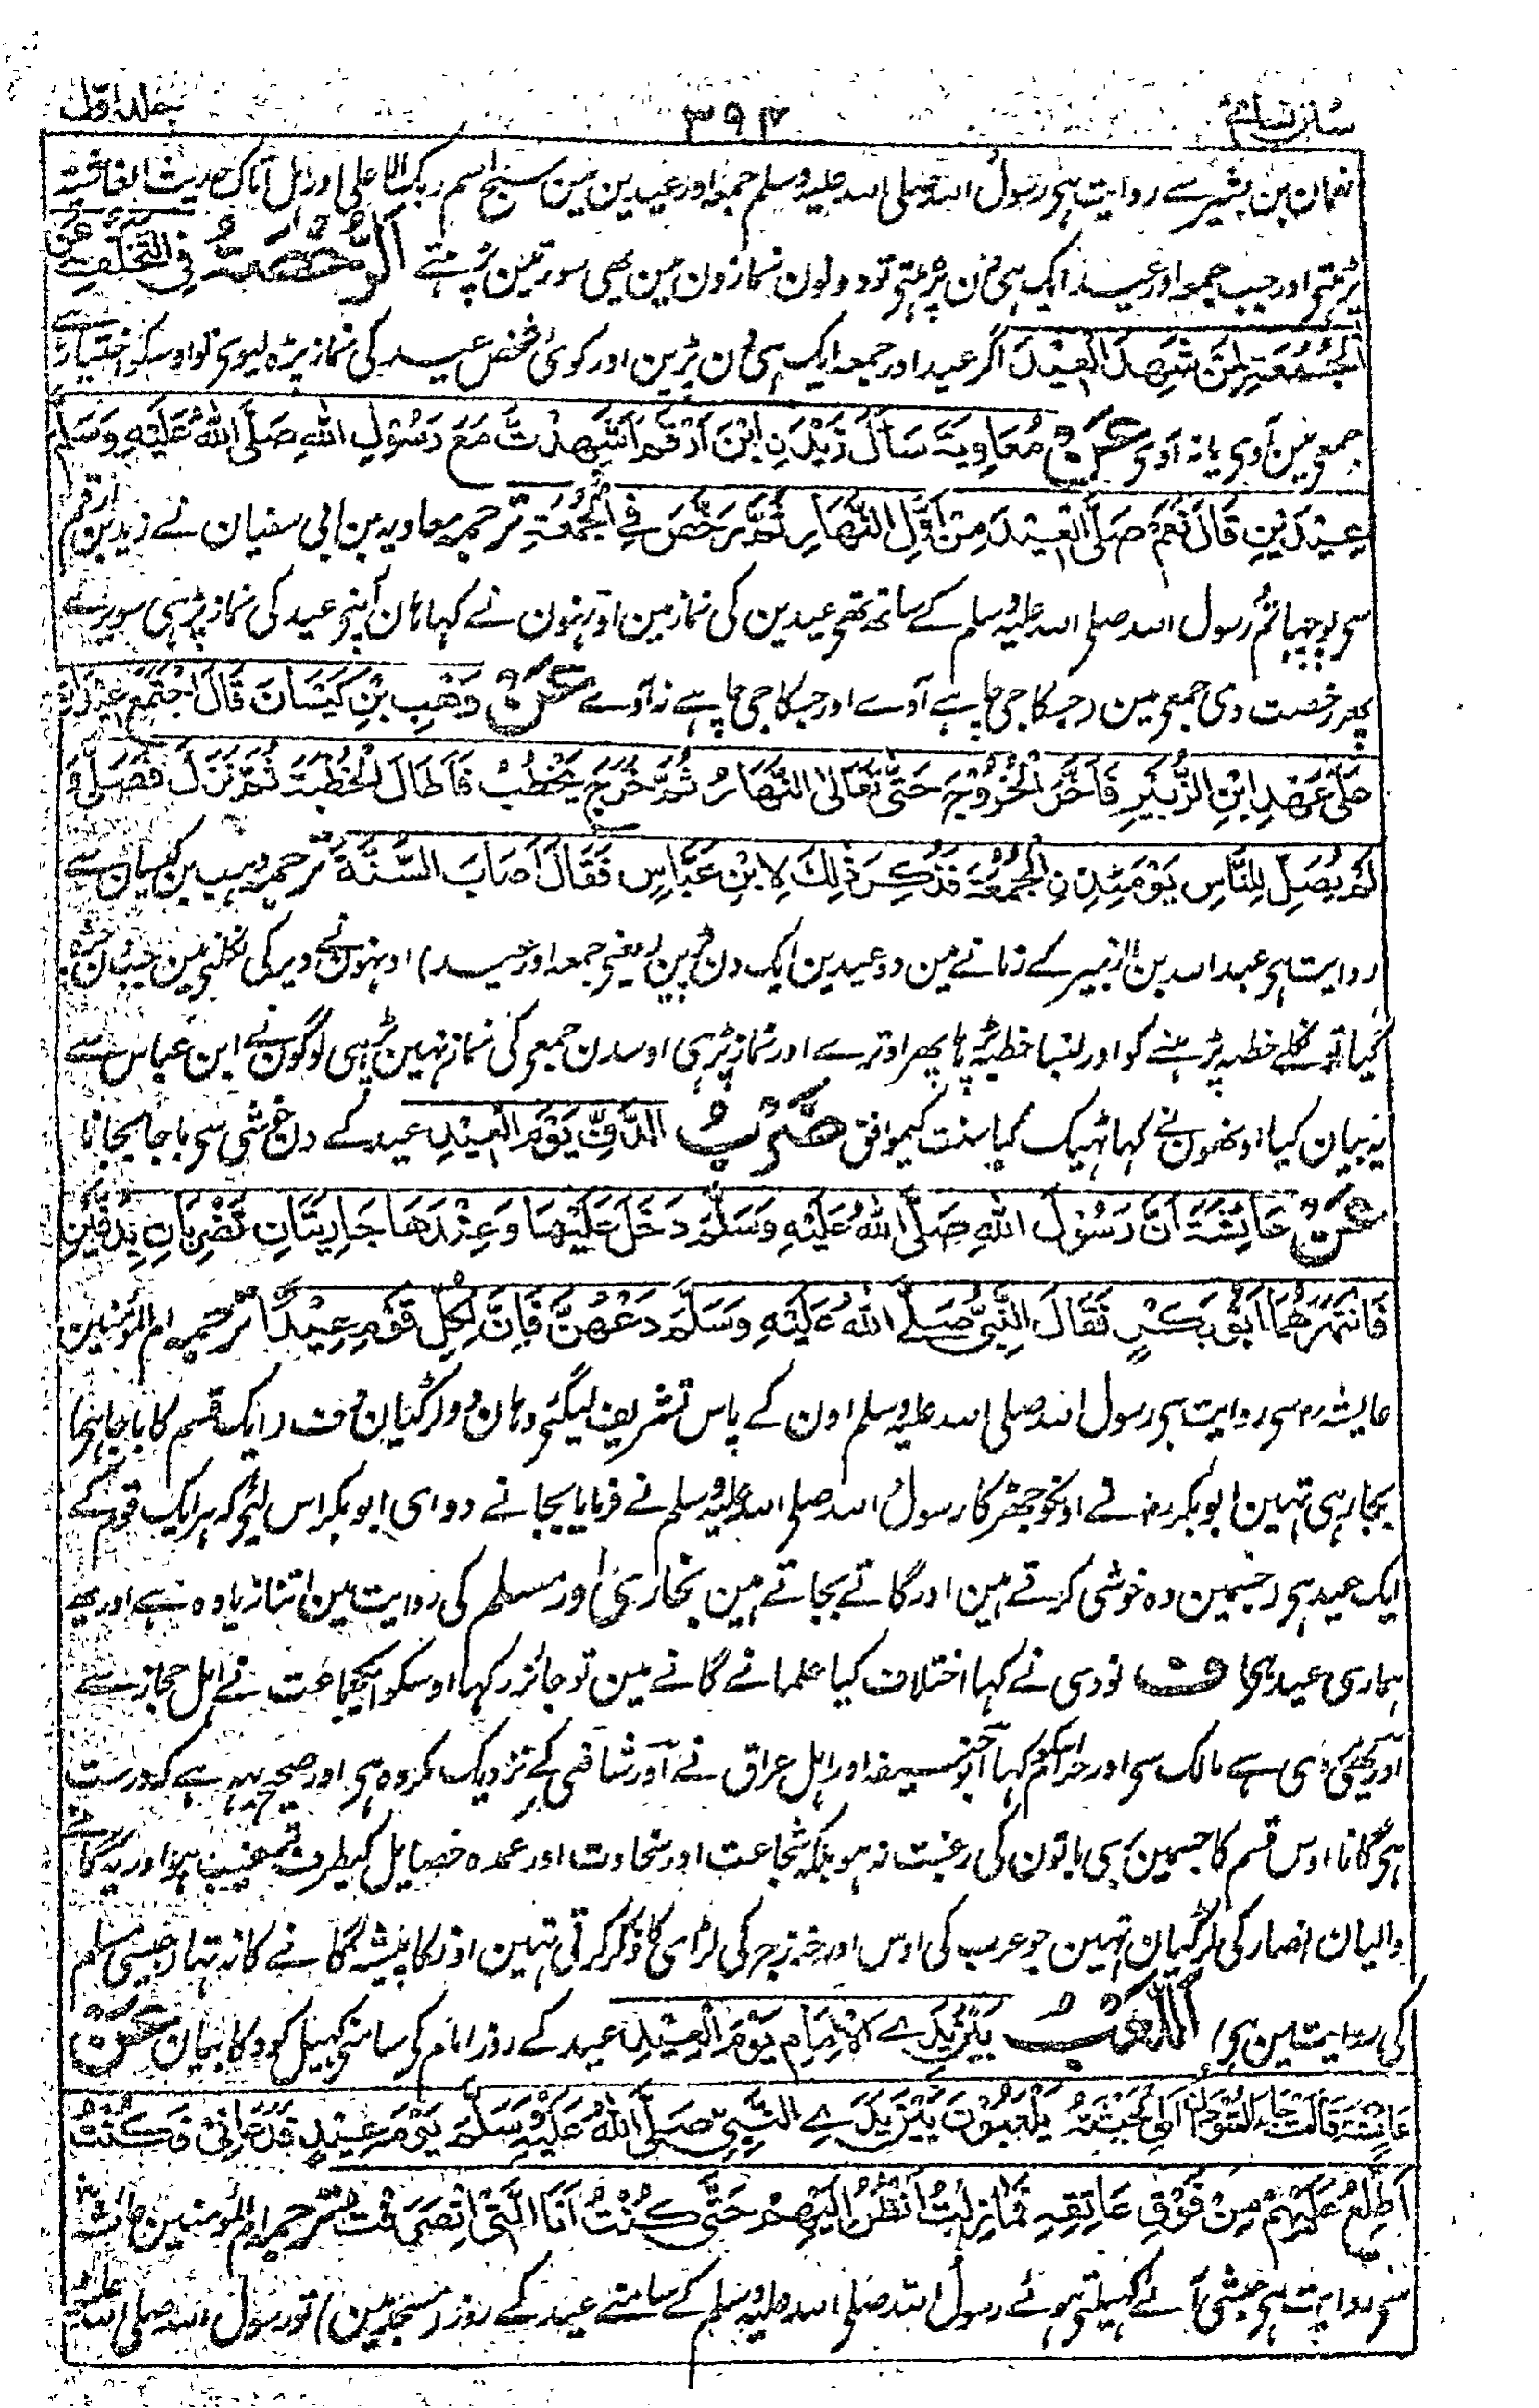 سنن نسائی ۳۹۲ جلد اول
نعمان بن بشیر سے روایت ہی رسول اللہ صلی اللہ علیہ وسلم جمعہ اور عیدین مین سبح اسم ربک الاعلی اور ہل اتاک حدیث الغاشیۃ
پڑہتی اور جب جمعہ اور عید ایک ہی دن پڑتی تو دونون نمازون مین یہی سورتین پڑہتے اَلرُّخْصَةُ فِي التَّخَلُّفِ عَنِ
الْجُمُعَةِ لِمَنْ شَهِدَ الْعِيْدَ اگر عید اور جمعہ ایک ہی دن پڑین اور کوئی شخص عید کی نماز پڑہ لیوی تو اوسکو اختیار ہے
جمعی مین آوی یا نہ آوی عَنْ مُعَاوِيَةَ سَأَلَ زَيْدَ نِ ابْنَ اَرْقَمَ اَشَهِدْتَّ مَعَ رَسُوْلِ اللهِ صَلَّى اللهُ عَلَيْهِ وَسَلَّمَ
عِيْدَيْنِ قَالَ نَعَمْ صَلَّى الْعِيْدَ مِنْ اَوَّلِ النَّهَارِ ثُمَّ رَخَّصَ فِي الْجُمُعَةِ ترجمہ معاویہ بن ابی سفیان نے زید بن ارقم
سی پوچہا تم رسول اللہ صلی اللہ علیہ وسلم کے ساتھ تھی عیدین کی نماز مین اونہون نے کہا ہان آپنی عید کی نماز پڑہی سویرے
پھر رخصت دی جمعی مین (جسکا جی چاہے آوے اور جسکا جی چاہے نہ آوے عَنْ وَهْبِ بْنِ كَيْسَانَ قَالَ اجْتَمَعَ عِيْدَانِ
عَلَى عَهْدِ ابْنِ الزُّبَيْرِ فَاَخَّرَ الْخُرُوْجَ حَتَّى تَعَالَى النَّهَارُ ثُمَّ خَرَجَ يَخْطُبُ فَاَطَالَ الْخُطْبَةَ ثُمَّ نَزَلَ فَصَلَّى وَ
لَمْ يُصَلِّ لِلنَّاسِ يَوْمَئِذِ نِ الْجُمُعَةَ فَذُكِرَ ذٰلِكَ لِابْنِ عَبَّاسٍ فَقَالَ اَصَابَ السُّنَّةَ ترجمہ وہب بن کیسان سے
روایت ہی عبداللہ بن الزبیر کے زمانے مین دو عیدین ایک دن پڑین (یعنی جمعہ اور عید) اونہون نے دیر کی نکلنی مین جب دن چڑہ
گیا تو نکلے خطبہ پڑہنے کو اور لنبا خطبہ پڑہا پھر اوترے اور نماز پڑہی اوسدن جمعی کی نماز نہین پڑہی لوگون نے ابن عباس سے
یہ بیان کیا اونھون نے کہا ٹہیک کیا سنت کیموافق ضَرْبُ الدُّفِّ يَوْمَ الْعِيْدِ عید کے دن خوشی سی باجا بجانا
عَنْ عَائِشَةَ اَنَّ رَسُوْلَ اللهِ صَلَّى اللهُ عَلَيْهِ وَسَلَّمَ دَخَلَ عَلَيْهَا وَعِنْدَهَا جَارِيَتَانِ تَضْرِبَانِ بِدُفَّيْنِ
فَانْتَهَرَهُمَا اَبُوْ بَكْرٍ فَقَالَ النَّبِيُّ صَلَّى اللهُ عَلَيْهِ وَسَلَّمَ دَعْهُنَّ فَاِنَّ لِكُلِّ قَوْمٍ عِيْدًا ترجمہ ام المومنین
عایشہ رض سی روایت ہی رسول اللہ صلی اللہ علیہ وسلم اون کے پاس تشریف لیگئی وہان دو لڑکیان دف (ایک قسم کا باجا ہی)
بجا رہی تہین ابو بکر رض نے اونکو جھڑکا رسول اللہ صلی اللہ علیہ وسلم نے فرمایا بجانے دو ای ابو بکر اس لئی کہ ہر ایک قوم کے
ایک عید ہی (جسمین وہ خوشی کرتے ہین اور گاتے بجاتے ہین بخاری اور مسلم کی روایت مین اتنا زیادہ ہے اور یہ
ہماری عید ہی) ف نووی نے کہا اختلاف کیا علما نے گانے مین تو جائز رکہا اوسکو ایکجماعت نے اہل حجاز سے
اور یہی مروی ہے مالک سی اور حرام کہا اسکو ابوحنیفہ اور اہل عراق نے اور شافعی کے نزدیک مکروہ ہی اور صحیح یہہ ہے کہ درست
ہی گانا اوس قسم کا جسمین بری باتون کی رغبت نہ ہو بلکہ شجاعت اور سخاوت اور عمدہ خصایل کیطرف ترغیب ہو اور یہ گانے
والیان انصار کی لڑکیان تہین جو عرب کی اوس اور خزرج کی لڑائی کا ذکر کرتی تہین اونکا پیشہ گانے کا نہ تہا (جیسی مسلم
کی روایت مین ہی) اَللَّعْبُ بَيْنَ يَدَيِ الْاِمَامِ يَوْمَ الْعِيْدِ عید کے روز امام کی سامنی کہیل کود کا بیان عَنْ
عَائِشَةَ قَالَتْ جَاءَ السُّوْدَانُ يَلْعَبُوْنَ بَيْنَ يَدَيِ النَّبِيِّ صَلَّى اللهُ عَلَيْهِ وَسَلَّمَ يَوْمَ عِيْدٍ فَدَعَانِيْ فَكُنْتُ
اَطَّلِعُ عَلَيْهِمْ مِنْ فَوْقِ عَاتِقِهِ فَمَا زِلْتُ اَنْظُرُ اِلَيْهِمْ حَتَّى كُنْتُ اَنَا الَّتِي انْصَرَفْتُ ترجمہ ام المومنین عائشہ
سی روایت ہی حبشی آئے کہیلتی ہوئے رسول اللہ صلی اللہ علیہ وسلم کے سامنے عید کے روز (مسجد مین) تو رسول اللہ صلی اللہ علیہ